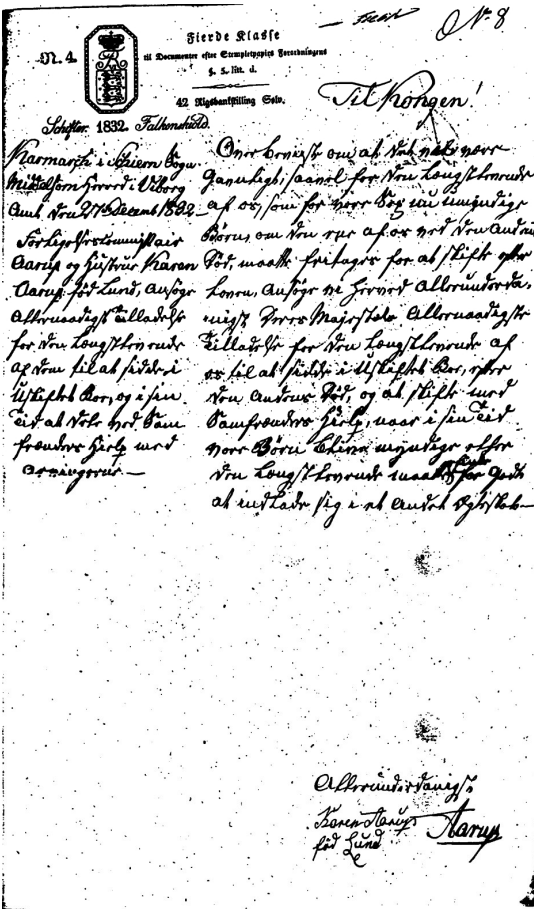 No. 8
N. 4.
Fierde Klasse
til Documenter efter Stempletpapiirs Forordningens
§. 5. litt. d.
42 Rigsbankskilling Sølv.
1832. Falkenskiold.
Til Kongen!
Karmark i Sogn
Middelsom Herred i Viborg
Amt, den 27 Decemb 1832
Forligelsescommissair
Aarup og Hustrue Karen
Aarup, fød Lund, ansøge
Allernaadigst Tilladelse
for den Længstlevende
af dem til at sidde i
Uskiftet Boe, og i sin
Tid at dele ved Sam
frænders Hielp med
Arvingerne —
Overbeviiste om at det vore
gavnligt, saavel for den Længstlevende
af os, som for vore nu umyndige
Børn, om den ene af os ved den Anden
Død, maatte fritages for at skifte efter
Loven, ansøge vi herved Allerunderda-
nigst Deres Majestæts Allernaadigste
Tilladelse for den Længstlevende af
os til at sidde i Uskiftet Boe, efter
den Andens Død, og at skifte med
Samfrænders Hielp, naar i sin Tid
vore Børn blive myndige eller
den Længstlevende maatte for godt
at indlade sig i et andet Ægteskab —
Allerunderdanigst
Karen Aarup Aarup
fød Lund